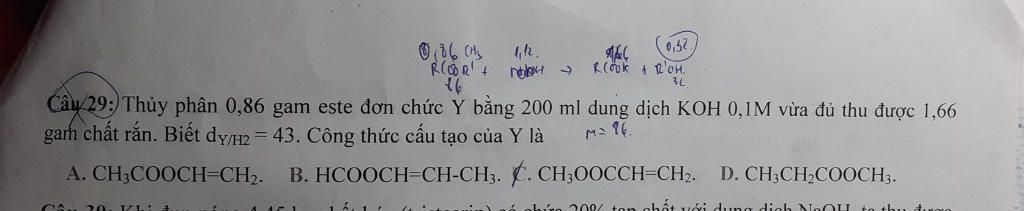 0,86 CH3 1,12 1,66 0,32
RCOOR' + KOH → RCOOK + R'OH
86 32
Câu 29: Thủy phân 0,86 gam este đơn chức Y bằng 200 ml dung dịch KOH 0,1M vừa đủ thu được 1,66
gam chất rắn. Biết dY/H2 = 43. Công thức cấu tạo của Y là M = 86
A. CH3COOCH=CH2. B. HCOOCH=CH-CH3. C. CH3OOCCH=CH2. D. CH3CH2COOCH3.